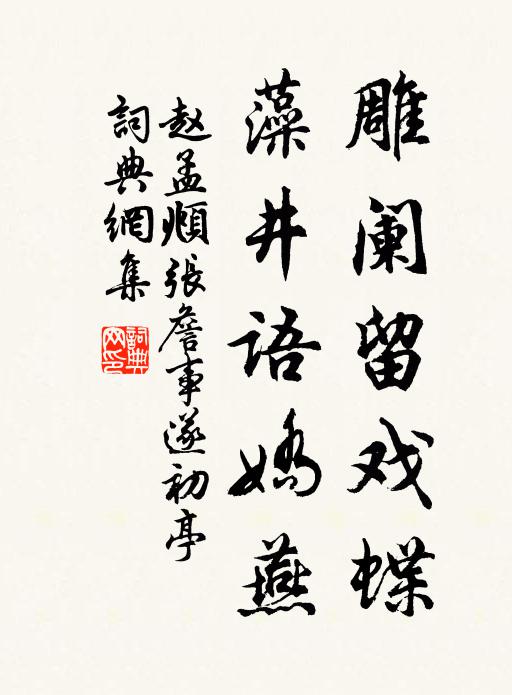 雕阑留戏蝶
藻井语娇燕
赵孟頫张詹事遂初亭
詞典網集
詞典網印